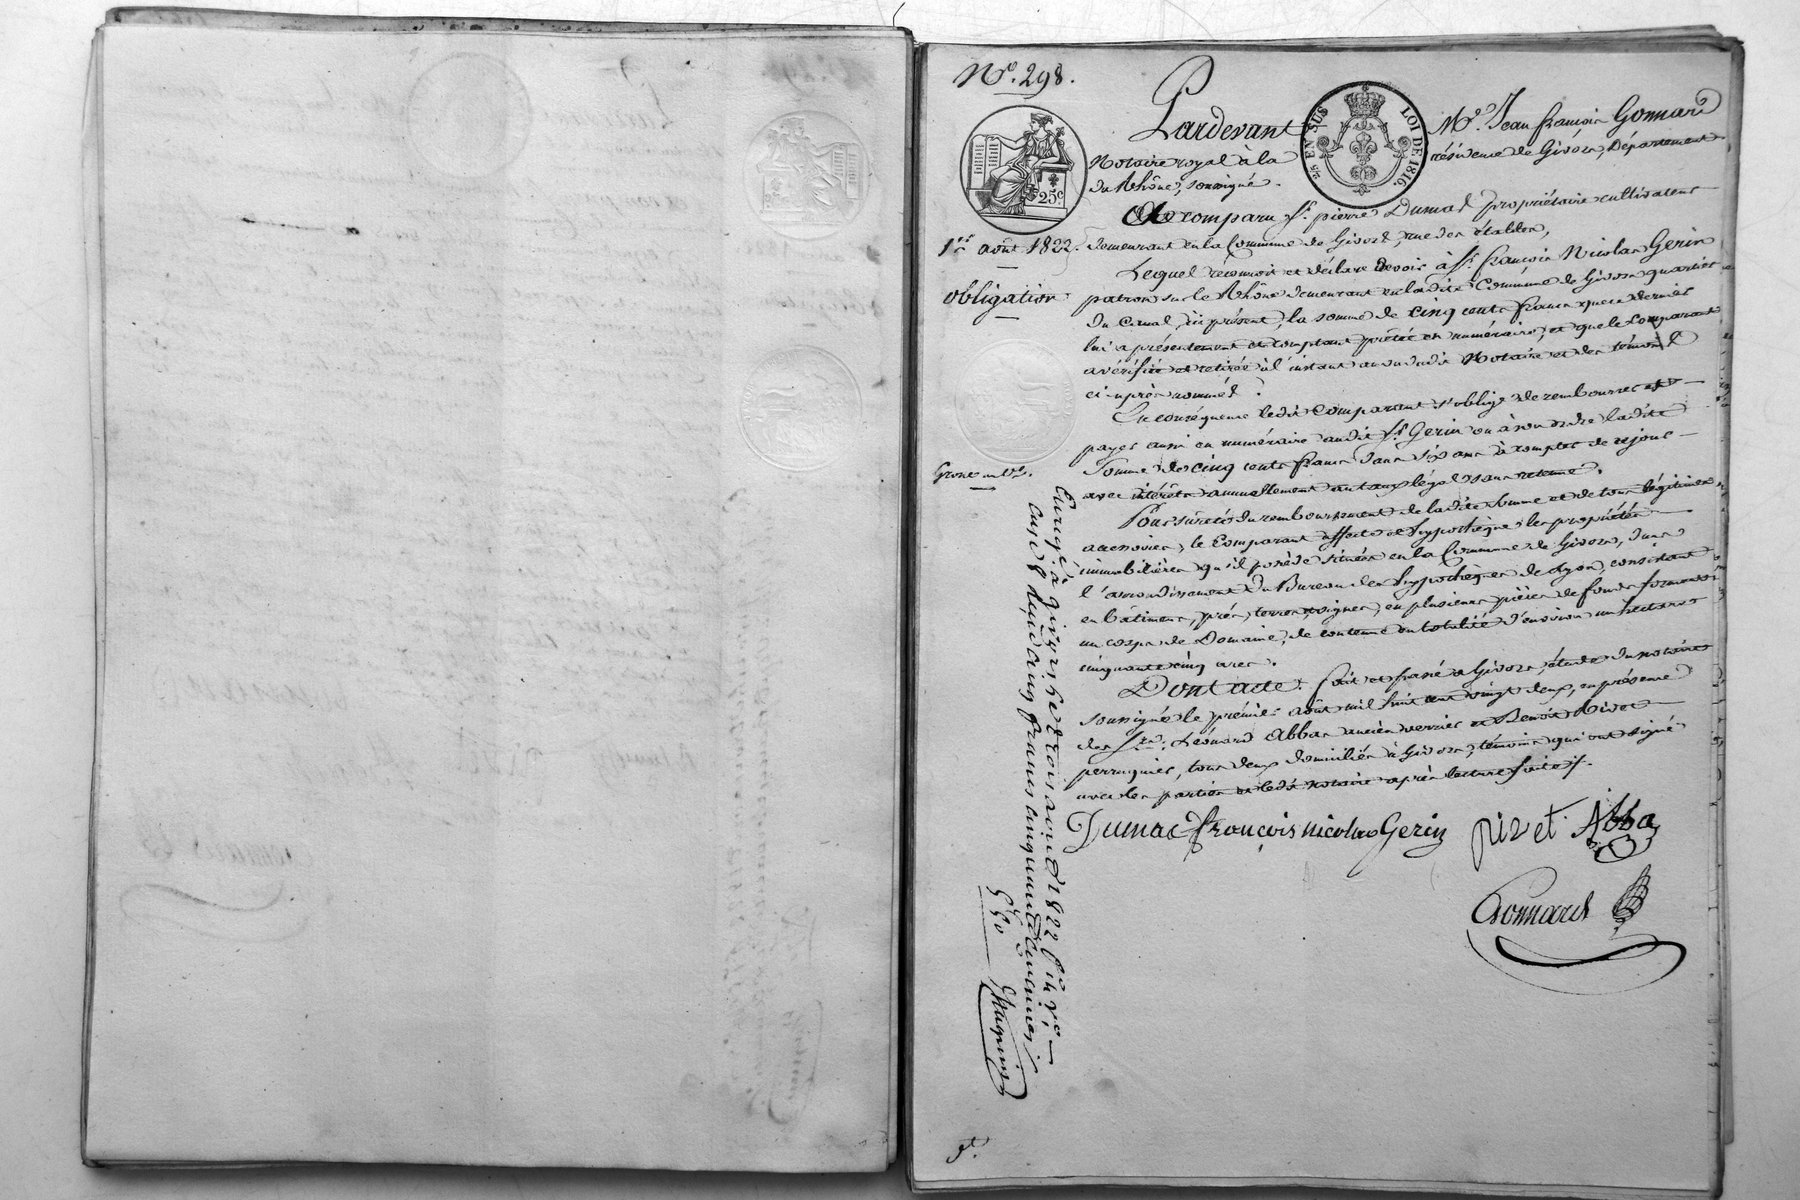 N.º 298.
Pardevant Mᵉ. Jean françois Gonnard
25ᶜ EN SUS LOI DE 1816.
25ᶜ
Notaire royal à la résidence de Givors, Département
du Rhône, soussigné.
A comparu Sʳ. pierre Dumas propriétaire cultivateur
1ᵉʳ août 1822.
demeurant en la Commune de Givors, rue des étables,
Lequel reconnoit et déclare devoir à Sʳ. françois Nicolas Gerin
obligation
patron sur le Rhône demeurant en ladite Commune de Givors quartier
du Canal, ici présent, la somme de cinq cents francs que ce dernier
lui a présentement et comptant prêtée en numéraire, et que le Comparant
a vérifiée et retirée à l'instant au vu dudit Notaire et des témoins
ci-après nommés.
En conséquence ledit Comparant s'oblige de rembourser et
payer aussi en numéraire audit Sʳ. Gerin ou à son ordre ladite
Somme de cinq cents francs dans six ans à compter de ce jour
avec intérêts annuellement au taux légal sans retenue.
Pour sûreté du remboursement de ladite somme et de tous légitimes
accessoires, le Comparant affecte et hypothèque les propriétés
immobilières qu'il possède situées en la Commune de Givors, dans
l'arrondissement du Bureau des hypothèques de Lyon, consistant
en bâtiment, prés, terres, vignes, en plusieurs pièces de fonds formant
un corps de Domaine, de contenue en totalité d'environ un hectare
cinquante cinq ares.
Dont acte. fait et passé à Givors, étude du notaire
soussigné le premier août mil huit cent vingt deux, en présence
des Sʳˢ. Léonard Abba ancien verrier et Benoit Pivot
perruquier, tous deux domiciliés à Givors, témoins qui ont signé
avec les parties et ledit notaire après lecture faite.
Dumas françois nicolas Gerin pivet Abba
Gonnard
Enregé à givors le trois août 1822 fº
Case 8 Reçu cinq francs cinquante centimes